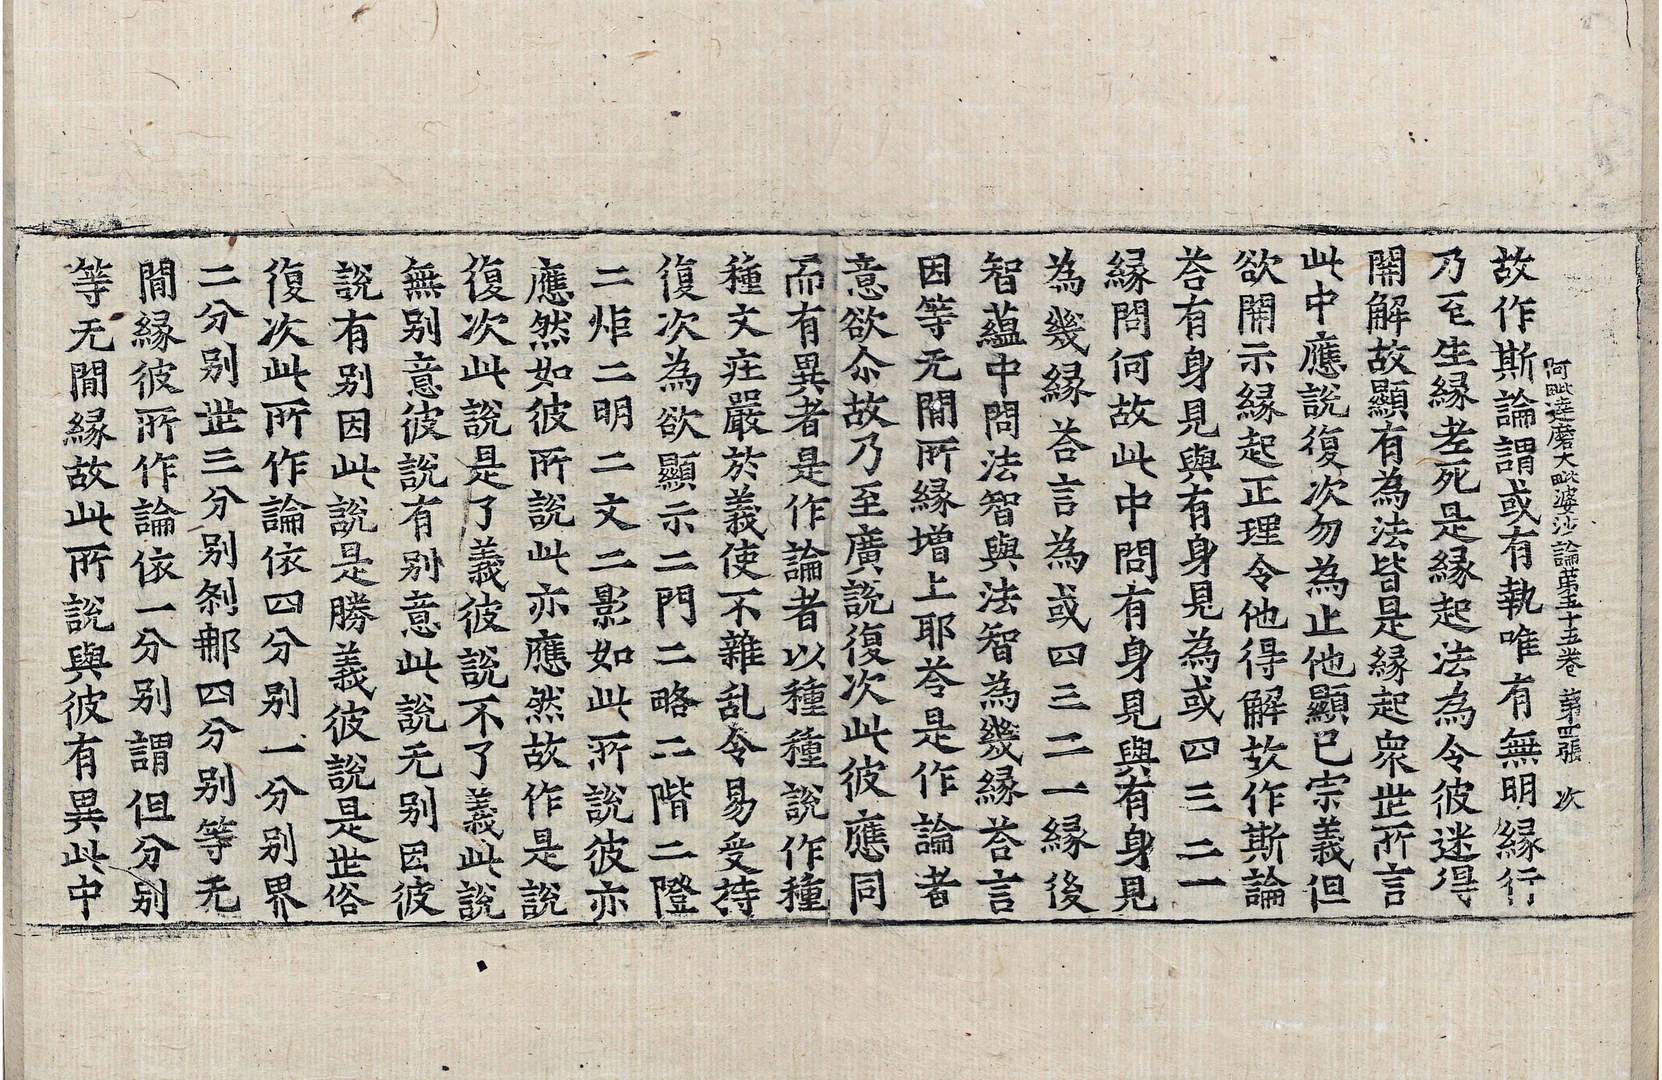 阿毗達磨大毗婆沙論第五十五卷 第四張 次
故作斯論謂或有執唯有無明緣行
乃至生緣老死是緣起法為令彼迷得
開解故顯有為法皆是緣起衆世所言
此中應說復次勿為止他顯已宗義但
欲開示緣起正理令他得解故作斯論
荅有身見與有身見為或四三二一
緣問何故此中問有身見與有身見
為幾緣荅言為或四三二一緣後
智蘊中問法智與法智為幾緣荅言
因等无間所緣增上耶荅是作論者
意欲尒故乃至廣說復次此彼應同
而有異者是作論者以種種說作種
種文莊嚴於義使不雜乱令易受持
復次為欲顯示二門二略二階二隥
二炬二明二文二影如此所說彼亦
應然如彼所說此亦應然故作是說
復次此說是了義彼說不了義此說
無別意彼說有別意此說无別因彼
說有別因此說是勝義彼說是世俗
復次此所作論依四分別一分別界
二分別世三分別剎那四分別等无
間緣彼所作論依一分別謂但分別
等无間緣故此所說與彼有異此中